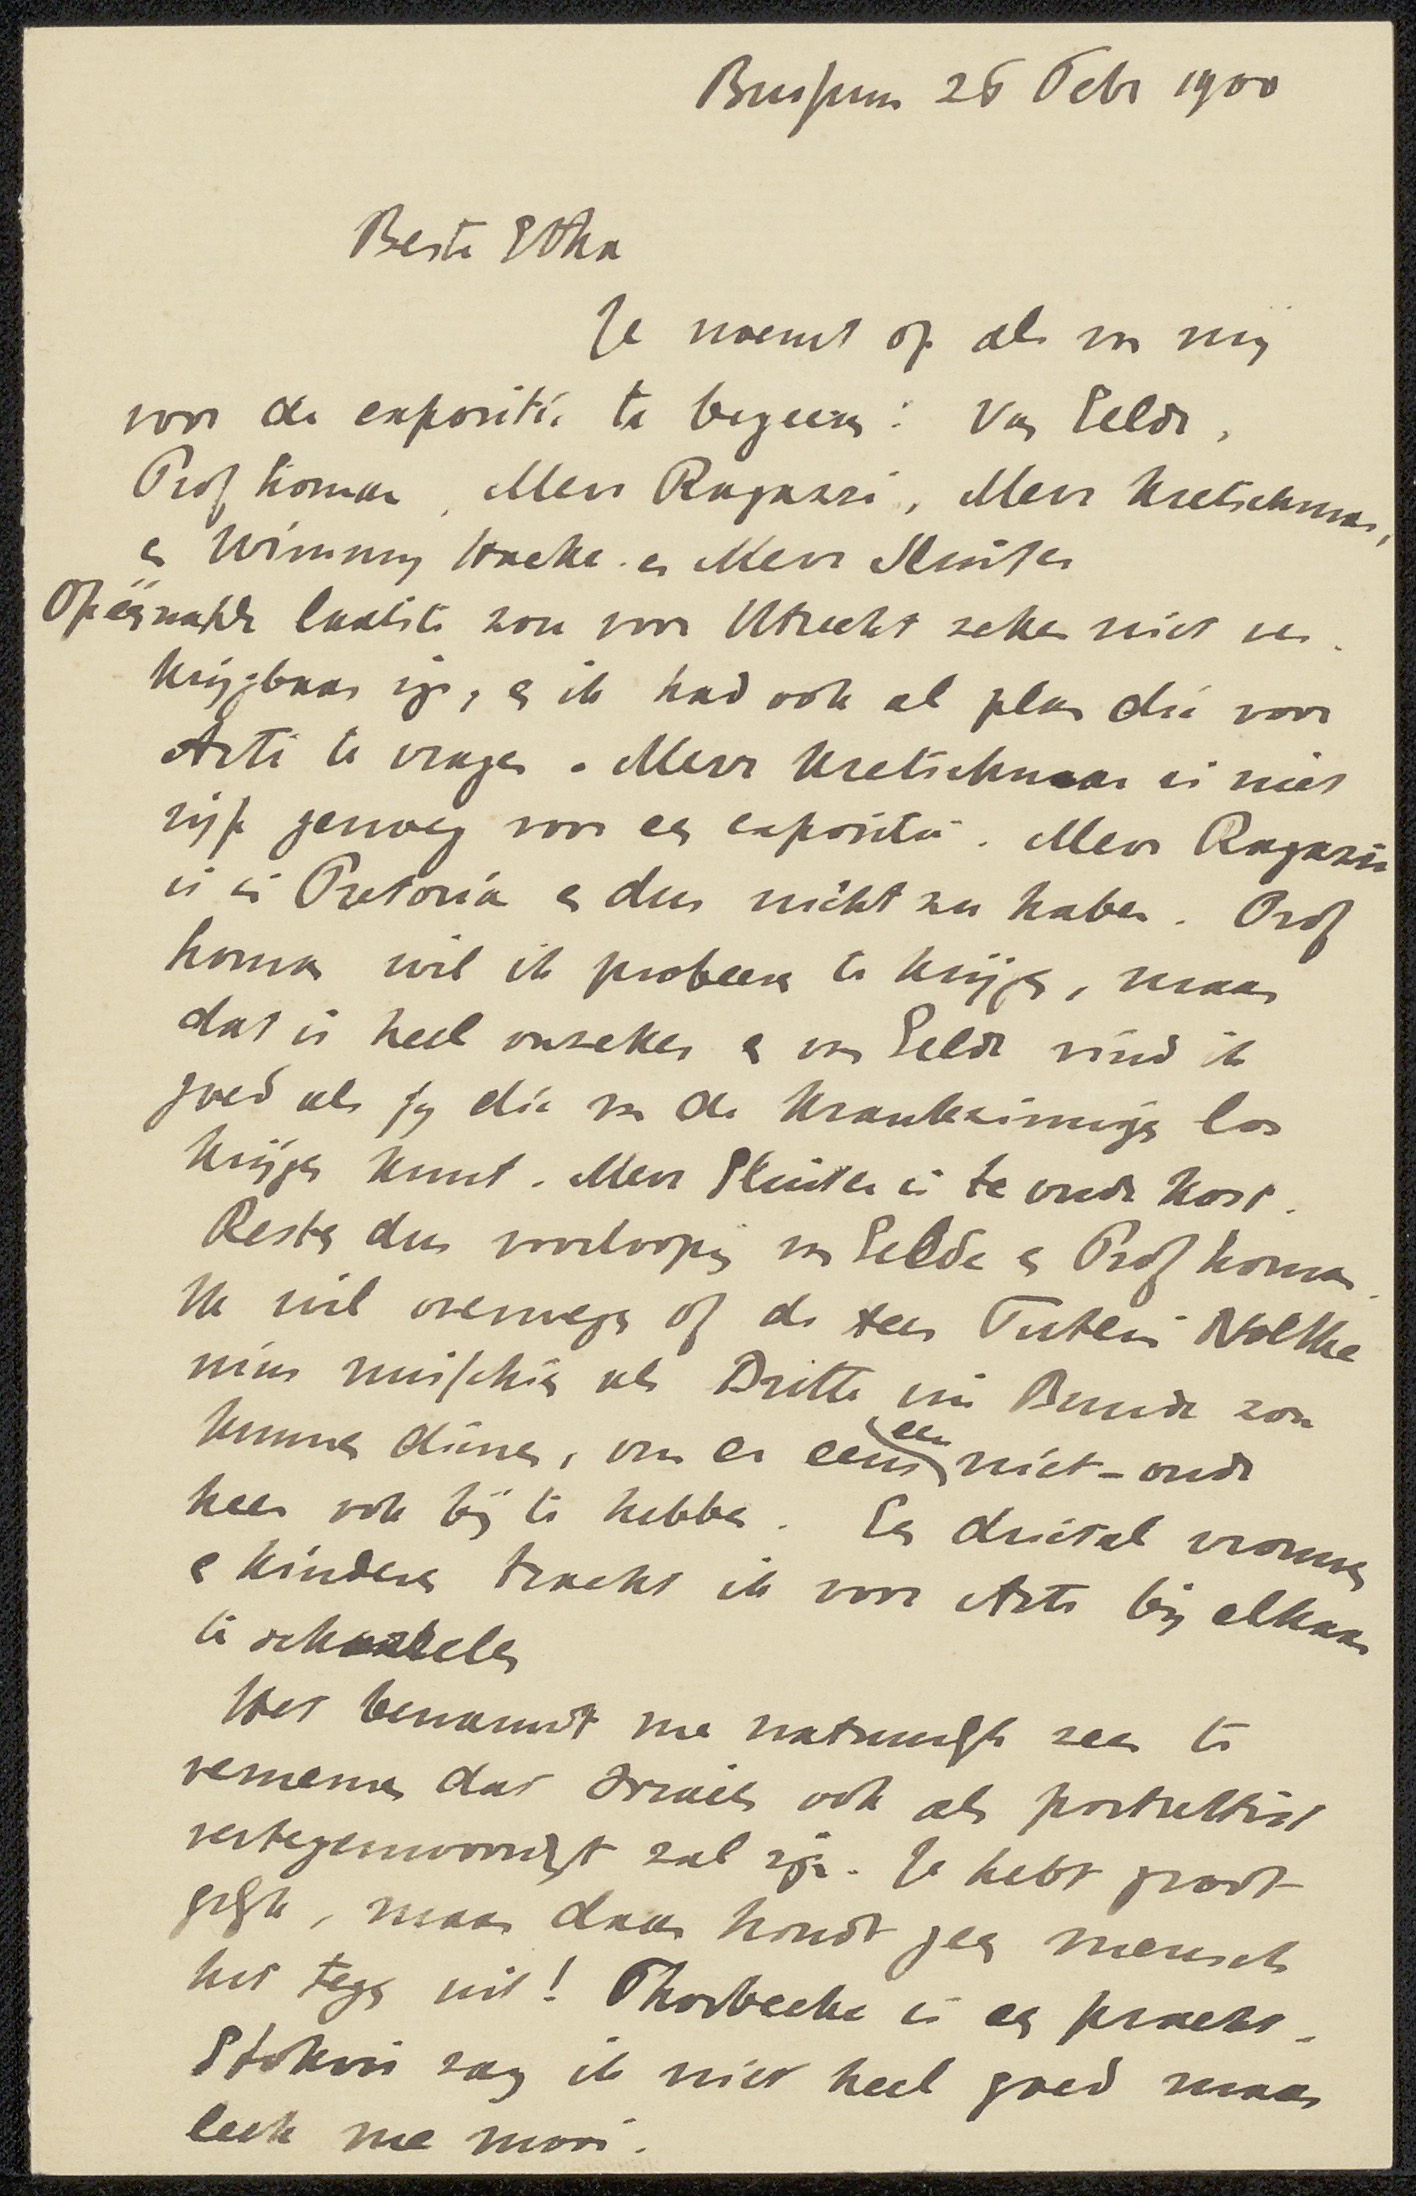 Bussum 26 Febr 1900
Beste Etha
Je noemt op als van mij
voor de expositie te begeeren: Van Gelder,
Prof Loman, Mevr Ragazzi, Mevr Kretschmar,
en Wimmy Hacke. en Mevr Sluiter
Op één na de laatste zou voor Utrecht zeker niet ver-
krijgbaar zijn, en ik had ook al plan die voor
Arti te vragen. Mevr Kretschmar is niet
rijp genoeg voor een expositie. Mevr Ragazzi
is in Pretoria en dus nicht zu haben. Prof
Loman wil ik probeeren te krijgen, maar
dat is heel onzeker en van Gelder vind ik
goed als jij die van de Krankzinnigen los
krijgen kunt. Mevr Sluiter is te oude kost.
Resten dus voorloopig van Gelder en Prof Loman.
Ik wil overwegen of de heer Tutein Nolthe
nius misschien als Dritte im Bunde zou
kunnen dienen, om er eens een niet-oude
heer ook bij te hebben. Een drietal vrouwen
en kinderen tracht ik voor Arti bij elkaar
te scharrelen
Het benauwt me natuurlijk zeer te
vernemen dat Israels ook als portrettist
vertegenwoordigt zal zijn. Je hebt groot
gelijk, maar daar houdt geen mensch
het tegen uit! Thorbecke is een pracht.
Stokvis zag ik niet heel goed maar
leek me mooi.